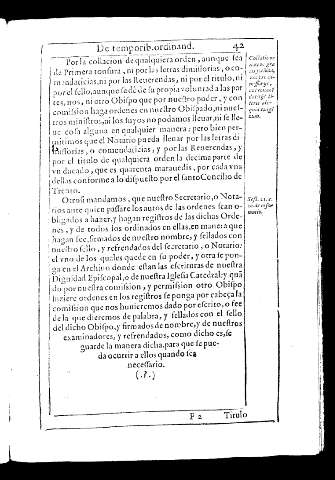 De temporib. ordinand. 42
Por la collacion de qualquiera orden, aunque sea
de Primera tonsura, ni por letras dimissorias, o co-
mendaticias, ni por las Reuerendas, ni por el titulo, ni
por el sello, aunque se dé de su propia voluntad a las par
tes, nos, ni otro Obispo que por nuestro poder, y con
comission haga ordenes en nuestro Obispado, ni nues-
tros ministros, ni los suyos no podamos lleuar, ni se lle-
ue cosa alguna en qualquier manera: pero bien per-
mitimos que el Notario pueda lleuar por las letras di
missorias, o comendaticias, y por las Reuerendas, y
por el titulo de qualquiera orden la decima parte de
vn ducado, que es quarenta marauedis, por cada vna
dellas conforme a lo dispuesto por el santo Concilio de
Trento.
Otrosi mandamos, que nuestro Secretario, o Nota-
rios ante quien passare los autos de las ordenes sean o-
bligados a hazer, y hagan registros de las dichas Orde-
nes, y de todos los ordinados en ellas, en manera que
hagan fee, firmados de nuestro nombre, y sellados con
nuestro sello, y refrendados del secretario, o Notario:
el vno de los quales quede en su poder, y otra se pon-
ga en el Archiuo donde estan las escrituras de nuestra
Dignidad Episcopal, o de nuestra Iglesia Catedral: y quã
do por nuestra comission, y permission otro Obispo
hiziere ordenes en los registros se ponga por cabeça la
comission que nos huuieremos dado por escrito, o fee
de la que dieremos de palabra, y sellados con el sello
del dicho Obispo, y firmados de nombre, y de nuestros
examinadores, y refrendados, como dicho es, se
guarde la manera dicha, para que se pue-
da ocurrir a ellos quando sea
necessario.
(.?.)
F 2 Titulo